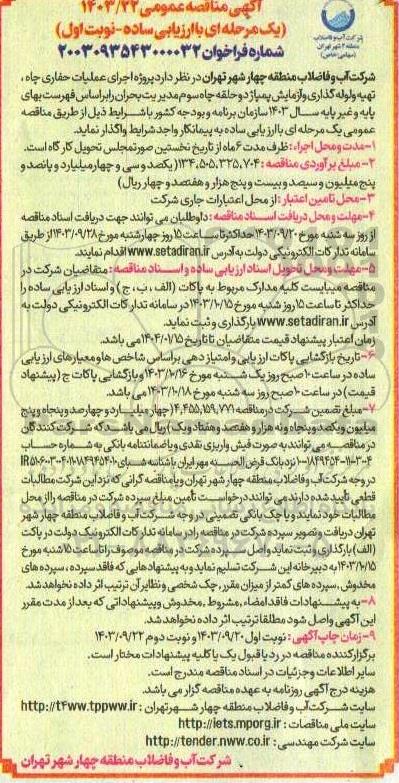 آگهی مناقصه عمومی ۱۴۰۳/۲۲
(یک مرحله ای با ارزیابی ساده - نوبت اول)
شماره فراخوان ۲۰۰۳۰۹۳۵۴۳۰۰۰۰۳۲
شرکت آب و فاضلاب
منطقه ۴ شهر تهران
(سهامی خاص)
شرکت آب و فاضلاب منطقه چهار شهر تهران در نظر دارد پروژه اجرای عملیات حفاری چاه ،
تهیه ولوله گذاری وآزمایش پمپاژ دو حلقه چاه سوم مدیریت بحران رابراساس فهرست بهای
پایه و غیر پایه سـال ۱۴۰۳ سازمان برنامه و بودجه کشور باشـرایط ذیل از طریق مناقصه
عمومی یک مرحله ای با ارزیابی ساده به پیمانکار واجد شرایط واگذار نماید.
۱- مدت ومحل اجراء : ظرف مدت ۶ ماه از تاریخ نخستین صورتمجلس تحویل کارگاه است.
۲- مبلغ برآوردی مناقصه : ۱۳۴,۵۰۵,۳۲۵,۷۰۴( یکصد و سی و چهارمیلیارد و پانصد و
پنج میلیون و سیصد و بیست و پنج هزار و هفتصد و چهار ریال)
۳- محل تامین اعتبار : از محل اعتبارات جاری شرکت
۴- مهلت و محل دریافت اسـناد مناقصه : داوطلبان می توانند جهت دریافت اسناد مناقصه
از روز سه شنبه مورخ ۱۴۰۳/۰۹/۲۰ حداکثر تا سـاعت ۱۵ روز چهارشنبه مورخ ۱۴۰۳/۰۹/۲۸ از طریق
سامانه تدارکات الکترونیکی دولت به آدرس www.setadiran.ir اقدام نمایند.
۵- مهلت ومحل تحویل اسناد ارزیابی ساده و اسـناد مناقصه : متقاضیان شرکت در
مناقصه میبایست کلیه مدارک مربوط به پاکات (الف ، ب ، ج ) و اسـناد ارزیابی ساده را
حداکثر تا ساعت ۱۵ روز شنبه مورخ ۱۴۰۳/۱۰/۱۵ در سامانه تدارکات الکترونیکی دولت به
آدرس www.setadiran.ir بارگذاری و ثبت نماید.
زمان اعتبار پیشنهاد قیمت متقاضیان تا تاریخ ۱۴۰۴/۰۱/۱۵ می باشد.
۶- تاریخ بازگشایی پاکات ارزیابی و امتیاز دهی براساس شاخص ها و معیارهای ارزیابی
ساده در ساعت ۱۰ صبح روز یک شـنبه مورخ ۱۴۰۳/۱۰/۱۶ و بازگشایی پاکات ج (پیشنهاد
قیمت) در ساعت ۱۰ صبح روز سه شنبه مورخ ۱۴۰۳/۱۰/۱۸ می باشد.
۷- مبلغ تضمین شـرکت در مناقصه ۴,۴۵۵,۱۵۹,۷۷۱( چهار میلیارد و چهارصد و پنجاه و پنج
میلیون و یکصد و پنجاه و نه هزار و هفتصد و هفتاد و یک) ریال می باشد که شـرکت کنندگان
در مناقصـه می توانند به صورت فیش واریزی نقدی و یا ضمانتنامه بانکی به شـماره حساب
نزد بانک قرض الحسـنه مهر ایران باشناسه شبای
در وجه شـرکت آب و فاضلاب منطقه چهار شهر تهران و یا مناقصه گرانی که نزد این شرکت مطالبات
قطعی تایید شده دارند می توانند درخواسـت تأمین مبلغ سپرده شرکت در مناقصه را از محل
مطالبات خود نمایند و یا چک بانکی تضمینی در وجه شـرکت آب و فاضلاب منطقه چهار شهر
تهران دریافت و تصویر سپرده شرکت در مناقصه را در سامانه تدارکات الکترونیکی دولت در پاکت
(الف) بارگذاری و ثبت نماید و اصل سـپرده شرکت در مناقصه موصوف را تا ساعت ۱۵ شنبه مورخ
۱۴۰۳/۱۰/۱۵ به دبیرخانه این شـرکت تسلیم نماید و به پیشنهادهایی که فاقد سپرده ، سپرده های
مخدوش , سپرده های کمتر از میزان مقرر , چک شخصی و نظایر آن ترتیب اثر داده نخواهد شد.
۸- به پیشـنهادات فاقد امضاء , مشروط , مخدوش و پیشنهاداتی که بعد از مدت مقرر
این آگهی واصل شود مطلقا ترتیب اثر داده نخواهد شد.
۹- زمان چاپ آگهی : نوبت اول ۱۴۰۳/۰۹/۲۰ و نوبت دوم ۱۴۰۳/۰۹/۲۲
برگزار کننده مناقصه در رد یا قبول یک یا کلیه پیشنهادات مختار است.
سایر اطلاعات و جزئیات در اسناد مناقصه مندرج است.
هزینه درج آگهی روزنامه به عهده مناقصه گزار می باشد.
سایت شـرکت آب و فاضلاب منطقه چهار شـهر تهران : http://t4ww.tppww.ir
سایت ملی مناقصات : http://iets.mporg.ir
سایت شرکت مهندسی : http://tender.nww.co.ir
شرکت آب و فاضلاب منطقه چهار شهر تهران